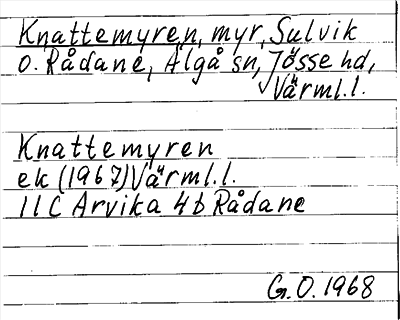 Knattemyren, myr, Sulvik
O. Rådane, Älgå sn, Jösse hd,
Värml.l.
Knattemyren
ek (1967) Värml.l.
11C Arvika 4b Rådane
G.O. 1968